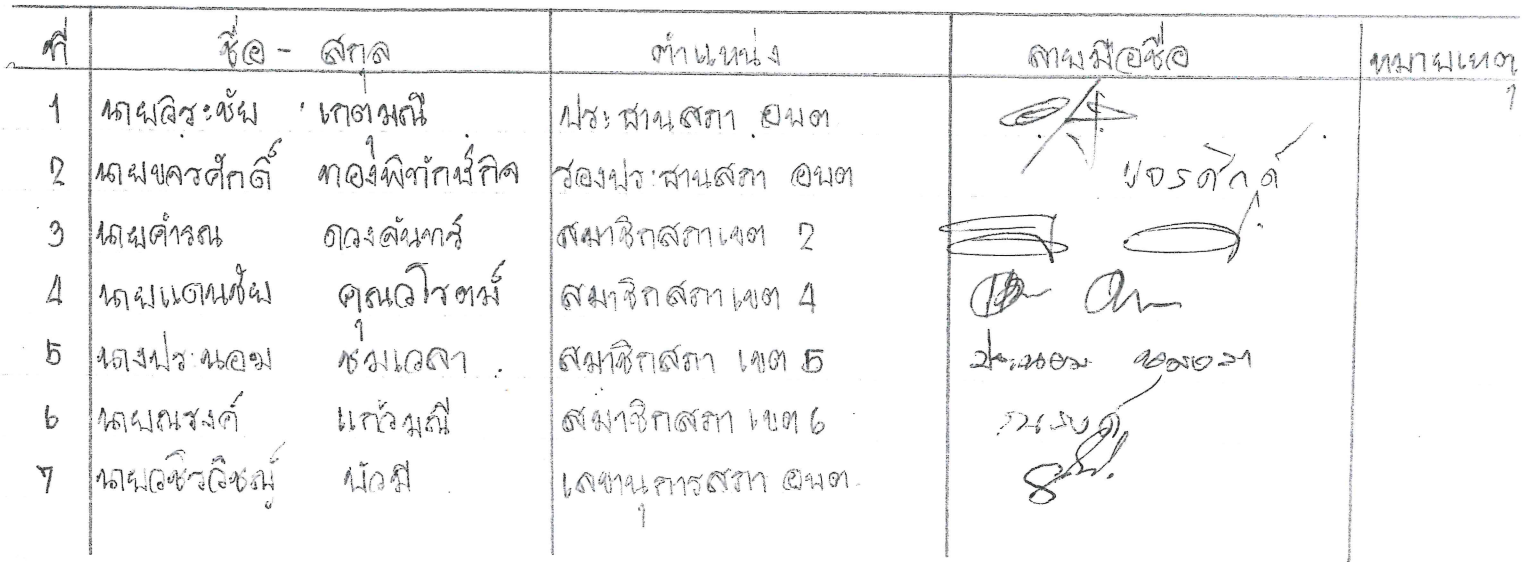 ที่ ชื่อ - สกุล ตำแหน่ง ลายมือชื่อ หมายเหตุ
1 นายวิระชัย เกตุมณี ประธานสภา อบต
2 นายขจรศักดิ์ ทองพิทักษ์กิจ รองประธานสภา อบต ขจรศักดิ์
3 นายคำรณ ดวงจันทร์ สมาชิกสภาเขต 2
4 นายแดนชัย คุณวโรตม์ สมาชิกสภา เขต 4
5 นางประนอม ชมเวลา สมาชิกสภา เขต 5 ประนอม ชมเวลา
6 นายณรงค์ แก้วมณี สมาชิกสภา เขต 6 ณรงค์
7 นายวชิรวิชญ์ บัวมี เลขานุการสภา อบต.